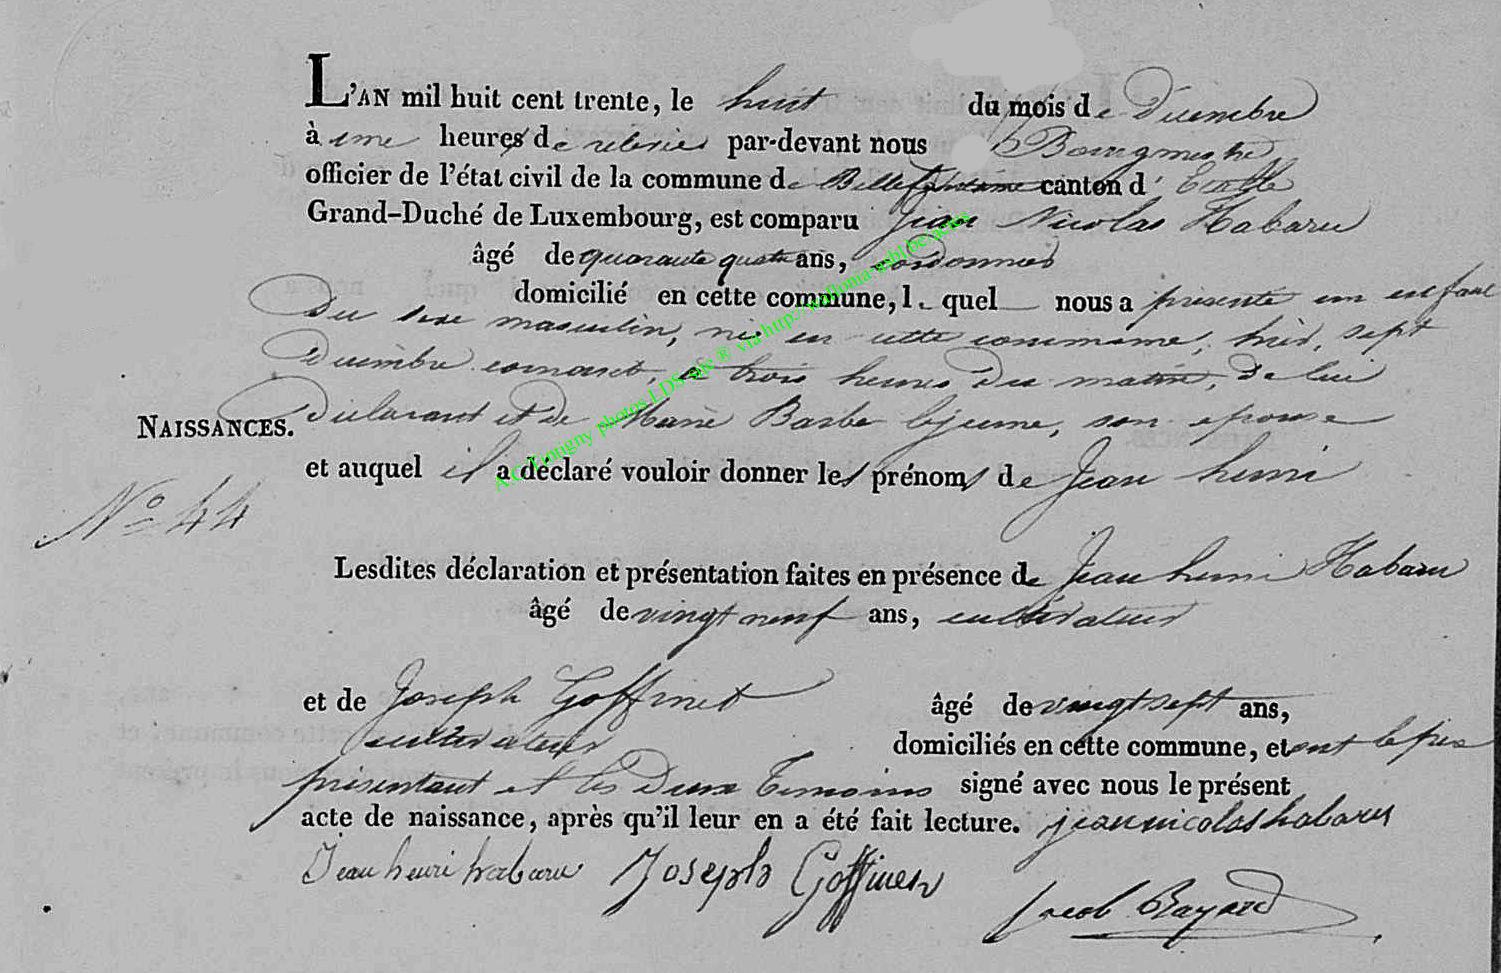 L'AN mil huit cent trente, le huit du mois de Décembre
à une heures de relevée par-devant nous Bourgmestre
officier de l'état civil de la commune de Bellefontaine canton d' Etalle
Grand-Duché de Luxembourg, est comparu Jean Nicolas Habaru
âgé de quarante quatre ans, cordonnier
domicilié en cette commune, lequel nous a présenté un enfant
du sexe masculin, né en cette commune, hier, sept
décembre courant, à trois heures du matin, de lui
déclarant et de Marie Barbe lejeune, son épouse
NAISSANCES.
et auquel il a déclaré vouloir donner les prénoms de Jean henri
N° 44
Lesdites déclaration et présentation faites en présence de Jean henri Habaru
âgé de vingt neuf ans, cultivateur
et de Joseph Goffinet âgé de vingt sept ans,
cultivateur domiciliés en cette commune, et ont le père
présentant et les deux temoins signé avec nous le présent
acte de naissance, après qu'il leur en a été fait lecture. jean nicolas habaru
Jean henri habaru Joseph Goffinet
Jacob Bayard
via http://wallonia-asbl.be/actes